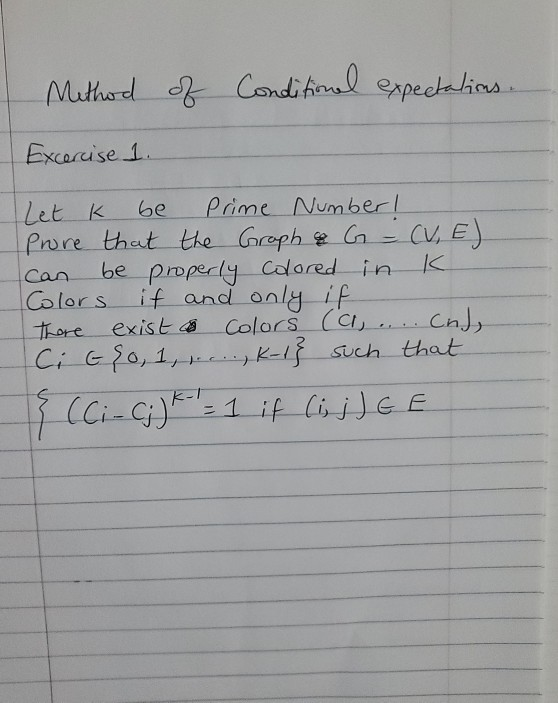 Method of Conditional expectations.
Excercise 1.
Let K be Prime Number!
Prove that the Graph G = (V, E)
can be properly colored in K
Colors if and only if
there exist colors (C1, .... Cn),
Ci ∈ {0, 1, ....., K-1} such that
{ (Ci - Cj)^K-1 = 1 if (i, j) ∈ E